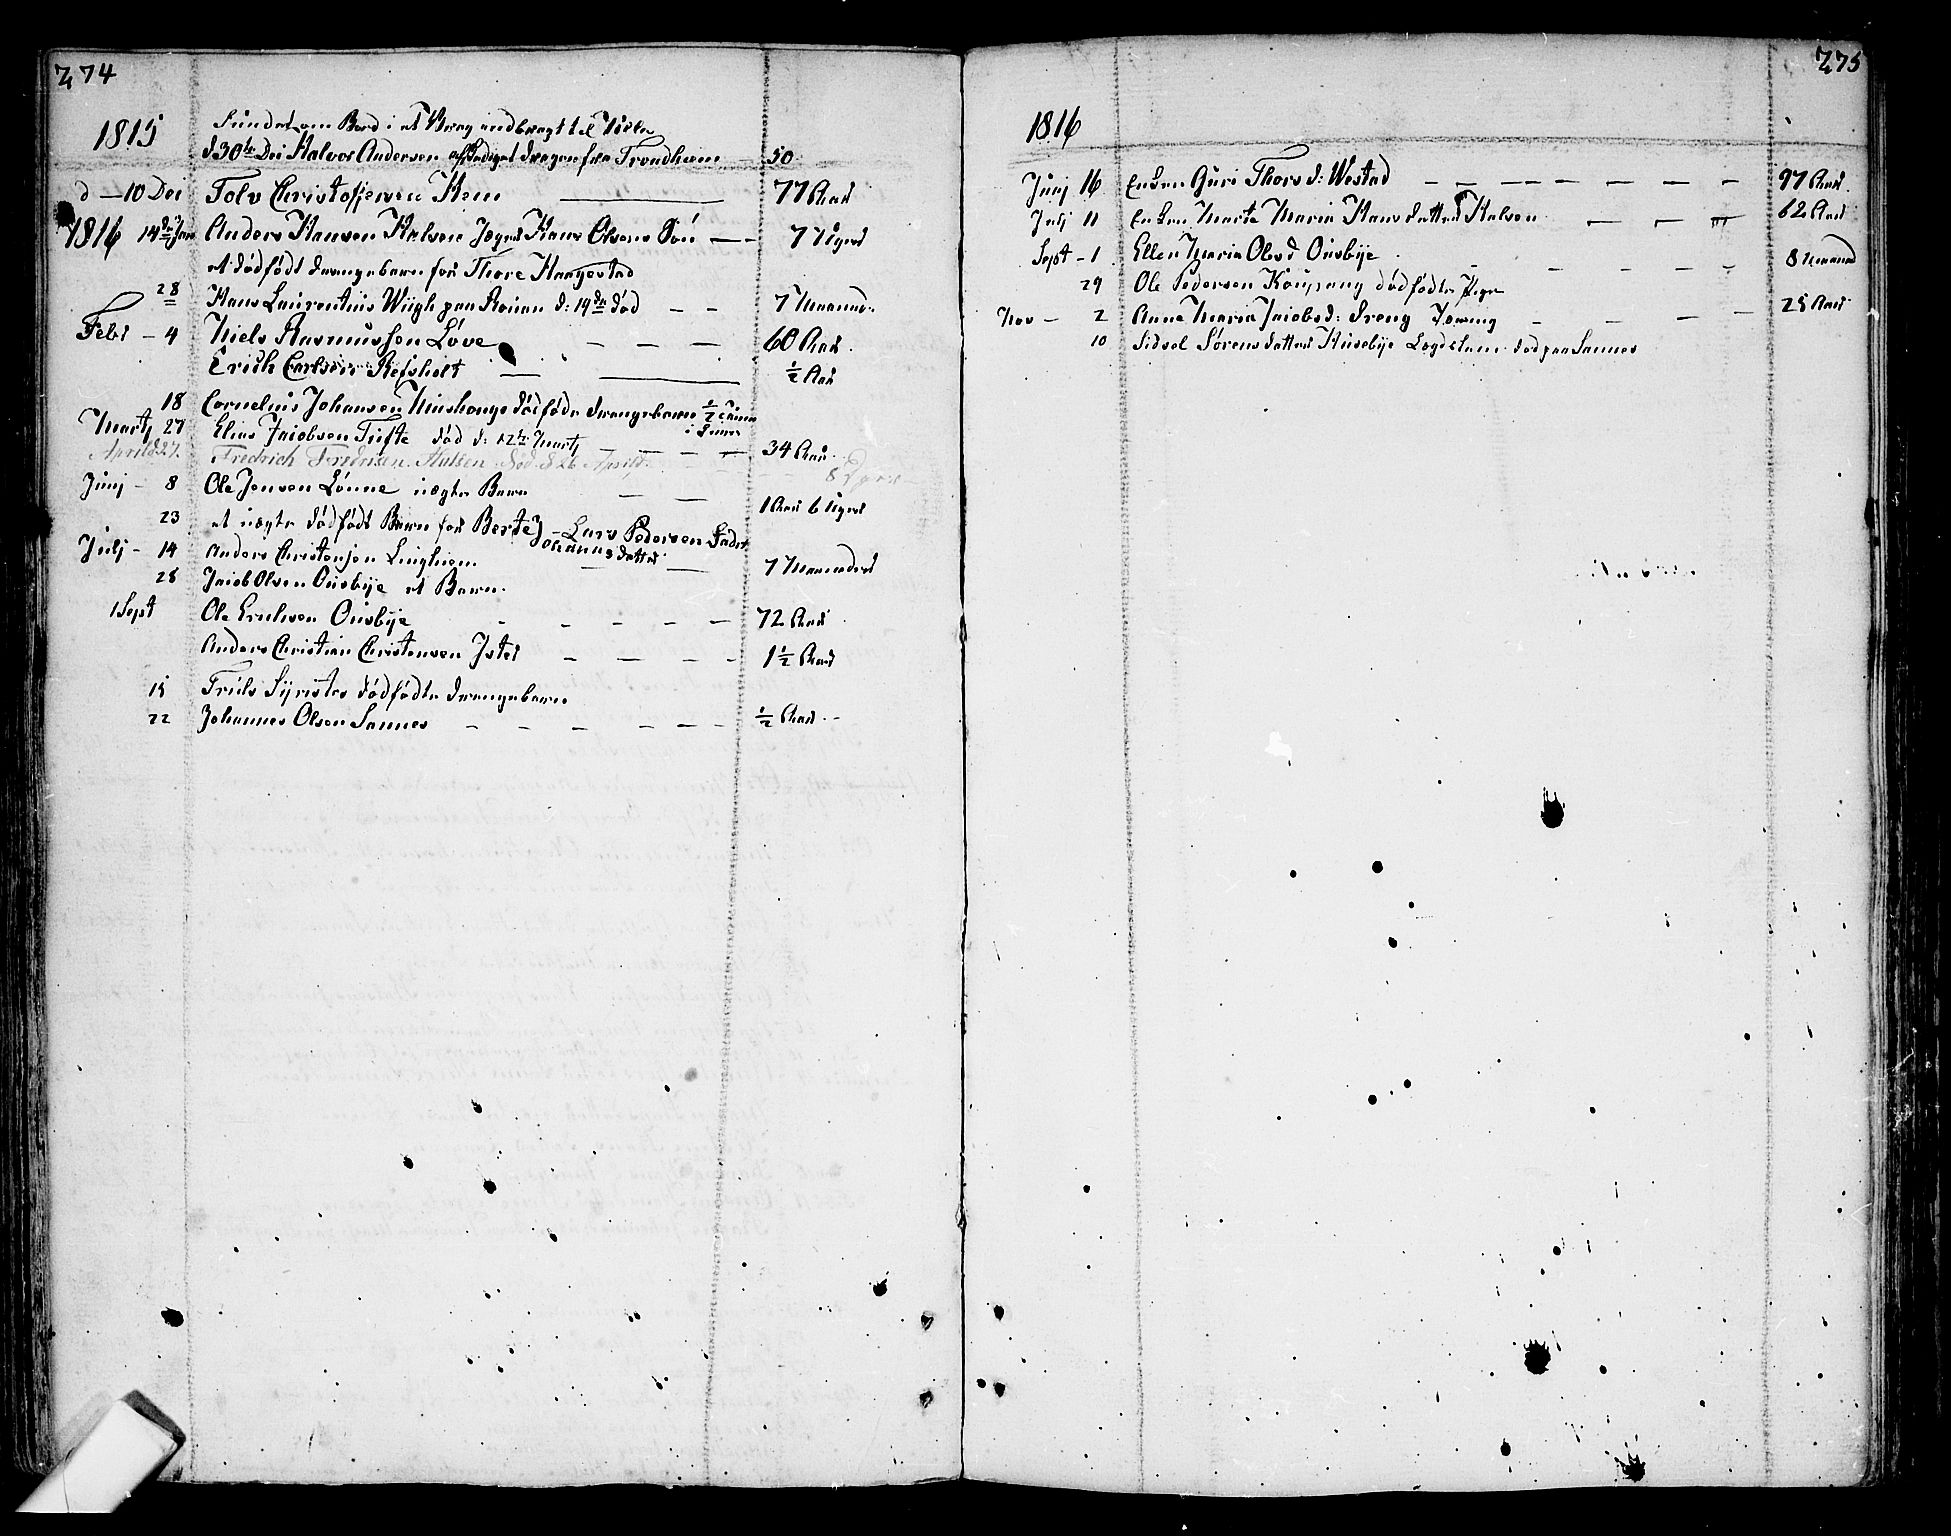 274
1815
fundet om Bord i et Vrag indbragt til
d 30te Dec Halvor Andersen afskediget dragon fra Trondhiem 50
d — 10 Dec Tolv Christophersen Hem — 77 Aar
1816 14de Jan Anders Hansen Halsen Jægers Hans Olsens Sön — 7 Uger
et dödfödt drengebarn for Thore Haugestad
28 Hans Laurentius Wiigh paa d: 14de död — 7 Maaned.
Febr — 4 Niels Rasmussen Löve — 60 Aar.
Erich Carlsen Refsholt — ½ Aar
18 Cornelius Johansen dödfödte drengebarn
Martj 27 Elias Jacobsen Tufte död d: 12te Martj — 34 Aar
April d 27. Fredrich Fredrisen Halsen. död d 26 April. 8 Dage
Junj — 8 Ole Jensen Lönne uægte Barn — 1 Aar 6 Uger
23 et uægte dödfödt Barn for Berte Johannesdatter — Lars Pedersen Fader
Julj — 14 Anders Christensen — 7 Maaneder
28 Jacob Olsen Ousbÿe et Barn.
1 Sept Ole Erichsen Ousbÿe — 72 Aar
Anders Christian Christensen — 1½ Aar
15 Truls dödfödte drengebarn
22 Johannes Olsen Sannes — ½ Aar
275
1816
Junj 16 Enken Guri Thors d: Westad — 97 Aar.
Julj 11 Enken Marte Maria Hans datter Halsen — 62 Aar
Sept — 1 Ellen Maria Ols d Ousbÿe — 8 Maaned
29 Ole Pedersen Kaupang dödfödte Pige
Nov — 2 Anne Maria Jacobs d: — 25 Aar
10 Sidsel Sörens datter Husebÿe Lægdslem död paa Sannes